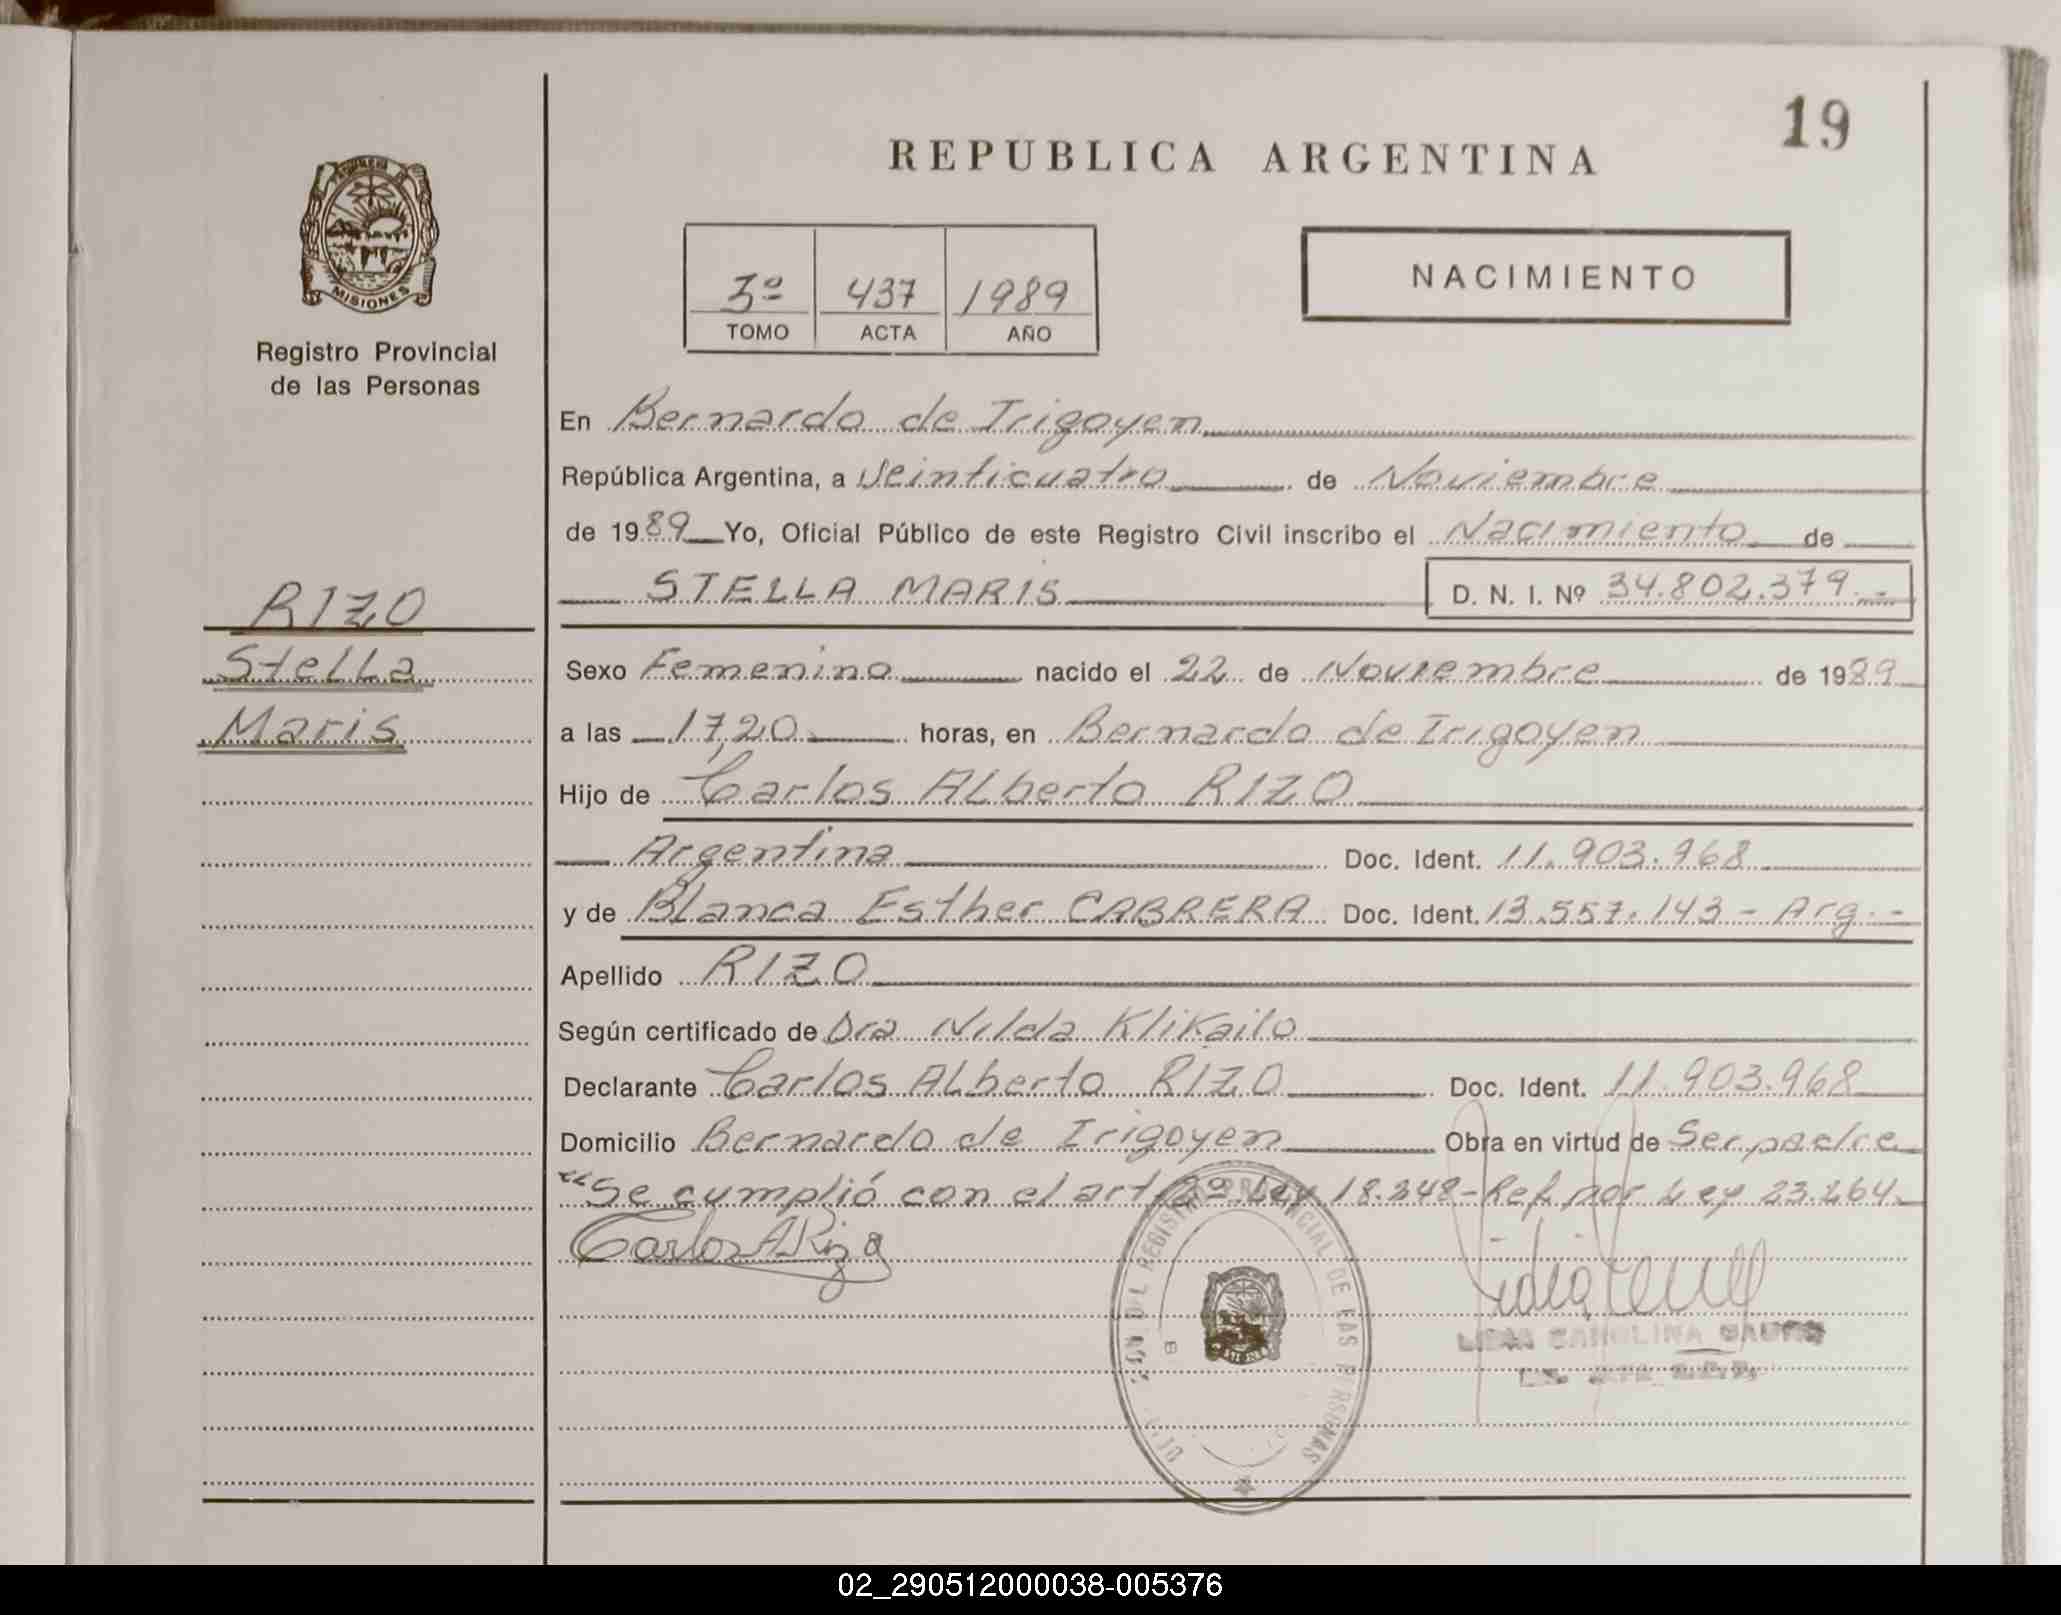 19
REPUBLICA ARGENTINA
MISIONES
Registro Provincial
de las Personas
3º 437 1989
TOMO ACTA AÑO
NACIMIENTO
En Bernardo de Irigoyen
República Argentina, a Veinticuatro de Noviembre
de 1989 Yo, Oficial Público de este Registro Civil inscribo el Nacimiento de
STELLA MARIS D. N. I. Nº 34.802.379.-
RIZO
Stella
Maris
Sexo Femenino nacido el 22 de Noviembre de 1989
a las 17,20 horas, en Bernardo de Irigoyen
Hijo de Carlos Alberto RIZO
Argentina Doc. Ident. 11.903.968
y de Blanca Esther CABRERA Doc. Ident. 13.557.143 - Arg.-
Apellido RIZO
Según certificado de Dra Nilda Klikailo
Declarante Carlos Alberto RIZO Doc. Ident. 11.903.968
Domicilio Bernardo de Irigoyen Obra en virtud de Ser padre
"Se cumplió con el art. 2º Ley 18.248-Ref por Ley 23.264
Carlos A Rizo
REGISTRO PROVINCIAL DE LAS PERSONAS
CAROLINA
02_290512000038-005376